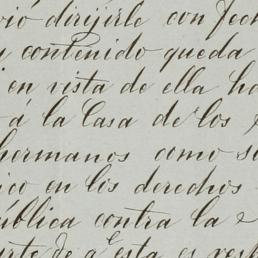 vió dirijirle con fech
y contenido queda
en vista de ella ha
á la Casa de los
hermanos como s
ico en los derechos
ública contra la
arte de a esta es resp